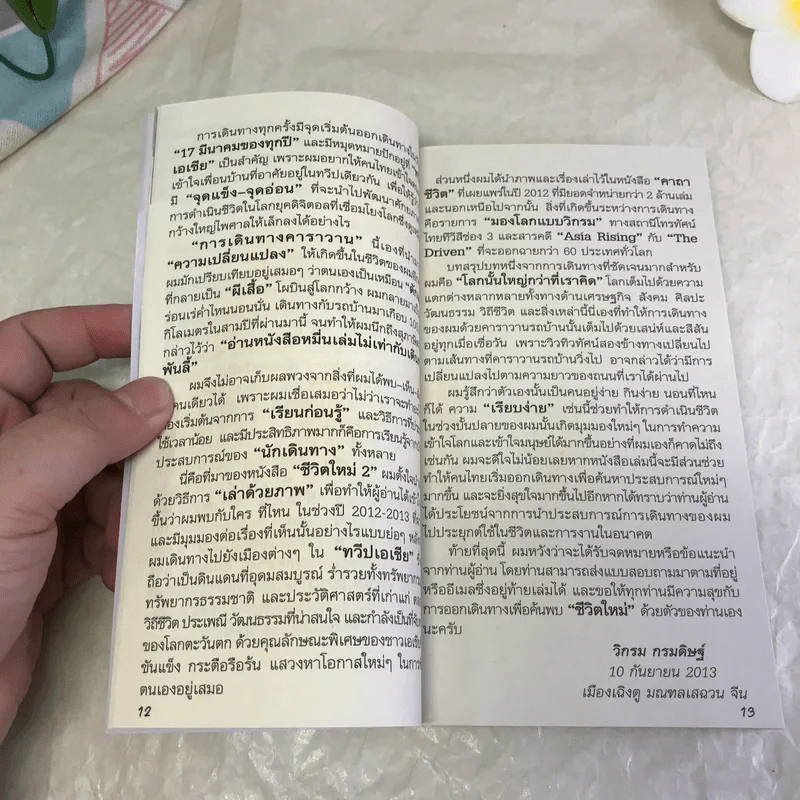 การเดินทางทุกครั้งมีจุดเริ่มต้นออกเดินทางใน
“17 มีนาคมของทุกปี” และมีหมุดหมายปักอยู่ที่
เอเชีย” เป็นสำคัญ เพราะผมอยากให้คนไทยเข้าใจ
เข้าใจเพื่อนบ้านที่อาศัยอยู่ในทวีปเดียวกัน เพื่อให้รู้
มี “จุดแข็ง-จุดอ่อน” ที่จะนำไปพัฒนาศักยภาพ
การดำเนินชีวิตในโลกยุคดิจิตอลที่เชื่อมโยงโลกซึ่งดู
กว้างใหญ่ไพศาลให้เล็กลงได้อย่างไร
“การเดินทางคาราวาน” นี้เองที่นำมา
“ความเปลี่ยนแปลง” ให้เกิดขึ้นในชีวิตของผม
ผมมักเปรียบเทียบอยู่เสมอๆ ว่าตนเองเป็นเหมือน
ที่กลายเป็น “ผีเสื้อ” โผบินสู่โลกกว้าง ผมกลายมา
ร่อนเร่ค่ำไหนนอนนั่น เดินทางกับรถบ้านมาเกือบ 100
กิโลเมตรในสามปีที่ผ่านมานี้ จนทำให้ผมนึกถึงสุภาษิต
กล่าวไว้ว่า “อ่านหนังสือหมื่นเล่มไม่เท่ากับเดิน
พันลี้”
ผมจึงไม่อาจเก็บผลพวงจากสิ่งที่ผมได้พบ-เห็น
คนเดียวได้ เพราะผมเชื่อเสมอว่าไม่ว่าเราจะทำอะไร
องเริ่มต้นจากการ “เรียนก่อนรู้” และวิธีการที่
ใช้เวลาน้อย และมีประสิทธิภาพมากก็คือการเรียนรู้จาก
ประสบการณ์ของ “นักเดินทาง” ทั้งหลาย
นี่คือที่มาของหนังสือ “ชีวิตใหม่ 2” ผมตั้งใจ
ด้วยวิธีการ “เล่าด้วยภาพ” เพื่อทำให้ผู้อ่านได้เข้าใจ
ขึ้นว่าผมพบกับใคร ที่ไหน ในช่วงปี 2012-2013
และมีมุมมองต่อเรื่องที่เห็นนั้นอย่างไรแบบย่อๆ
ผมเดินทางไปยังเมืองต่างๆ ใน “ทวีปเอเชีย”
ถือว่าเป็นดินแดนที่อุดมสมบูรณ์ ร่ำรวยทั้งทรัพยากร
ทรัพยากรธรรมชาติ และประวัติศาสตร์ที่เก่าแก่
วิถีชีวิต ประเพณี วัฒนธรรมที่น่าสนใจ และกำลังเป็นที่
ของโลกตะวันตก ด้วยคุณลักษณะพิเศษของชาวเอเชีย
ขันแข็ง กระตือรือร้น แสวงหาโอกาสใหม่ๆ ในการ
ตนเองอยู่เสมอ
12
ส่วนหนึ่งผมได้นำภาพและเรื่องเล่าไว้ในหนังสือ “คาถา
ชีวิต” ที่เผยแพร่ในปี 2012 ที่มียอดจำหน่ายกว่า 2 ล้านเล่ม
และนอกเหนือไปจากนั้น สิ่งที่เกิดขึ้นระหว่างการเดินทาง
คือรายการ “มองโลกแบบวิกรม” ทางสถานีโทรทัศน์
ไทยทีวีสีช่อง 3 และสารคดี “Asia Rising” กับ “The
Driven” ที่จะออกฉายกว่า 60 ประเทศทั่วโลก
บทสรุปบทหนึ่งจากการเดินทางที่ชัดเจนมากสำหรับ
ผมคือ “โลกนั้นใหญ่กว่าที่เราคิด” โลกเต็มไปด้วยความ
แตกต่างหลากหลายทั้งทางด้านเศรษฐกิจ สังคม ศิลปะ
วัฒนธรรม วิถีชีวิต และสิ่งเหล่านี้นี่เองที่ทำให้การเดินทาง
ของผมด้วยคาราวานรถบ้านนั้นเต็มไปด้วยเสน่ห์และสีสัน
อยู่ทุกเมื่อเชื่อวัน เพราะวิวทิวทัศน์สองข้างทางเปลี่ยนไป
ตามเส้นทางที่คาราวานรถบ้านวิ่งไป อาจกล่าวได้ว่ามีการ
เปลี่ยนแปลงไปตามความยาวของถนนที่เราได้ผ่านไป
ผมรู้สึกว่าตัวเองนั้นเป็นคนอยู่ง่าย กินง่าย นอนที่ไหน
ก็ได้ ความ “เรียบง่าย” เช่นนี้ช่วยทำให้การดำเนินชีวิต
ในช่วงบั้นปลายของผมนั้นเกิดมุมมองใหม่ๆ ในการทำความ
เข้าใจโลกและเข้าใจมนุษย์ได้มากขึ้นอย่างที่ผมเองก็คาดไม่ถึง
เช่นกัน ผมจะดีใจไม่น้อยเลยหากหนังสือเล่มนี้จะมีส่วนช่วย
ทำให้คนไทยเริ่มออกเดินทางเพื่อค้นหาประสบการณ์ใหม่ๆ
มากขึ้น และจะยิ่งสุขใจมากขึ้นไปอีกหากได้ทราบว่าท่านผู้อ่าน
ได้ประโยชน์จากการนำประสบการณ์การเดินทางของผม
ไปประยุกต์ใช้ในชีวิตและการงานในอนาคต
ท้ายที่สุดนี้ ผมหวังว่าจะได้รับจดหมายหรือข้อแนะนำ
จากท่านผู้อ่าน โดยท่านสามารถส่งแบบสอบถามมาตามที่อยู่
หรืออีเมลซึ่งอยู่ท้ายเล่มได้ และขอให้ทุกท่านมีความสุขกับ
การออกเดินทางเพื่อค้นพบ “ชีวิตใหม่” ด้วยตัวของท่านเอง
นะครับ
วิกรม กรมดิษฐ์
10 กันยายน 2013
เมืองเฉิงตู มณฑลเสฉวน จีน
13